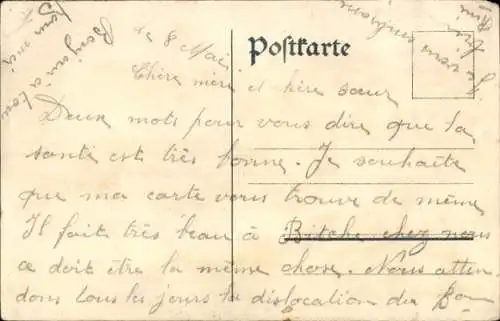 Postkarte
le 8 Mai
Chère mère et chère sœur
Deux mots pour vous dire que la
santé est très bonne. Je souhaite
que ma carte vous trouve de même
Il fait très beau à Bitche chez nous
ce doit être la même chose. Nous atten
dons tous les jours la dislocation du
Bonjour à tous